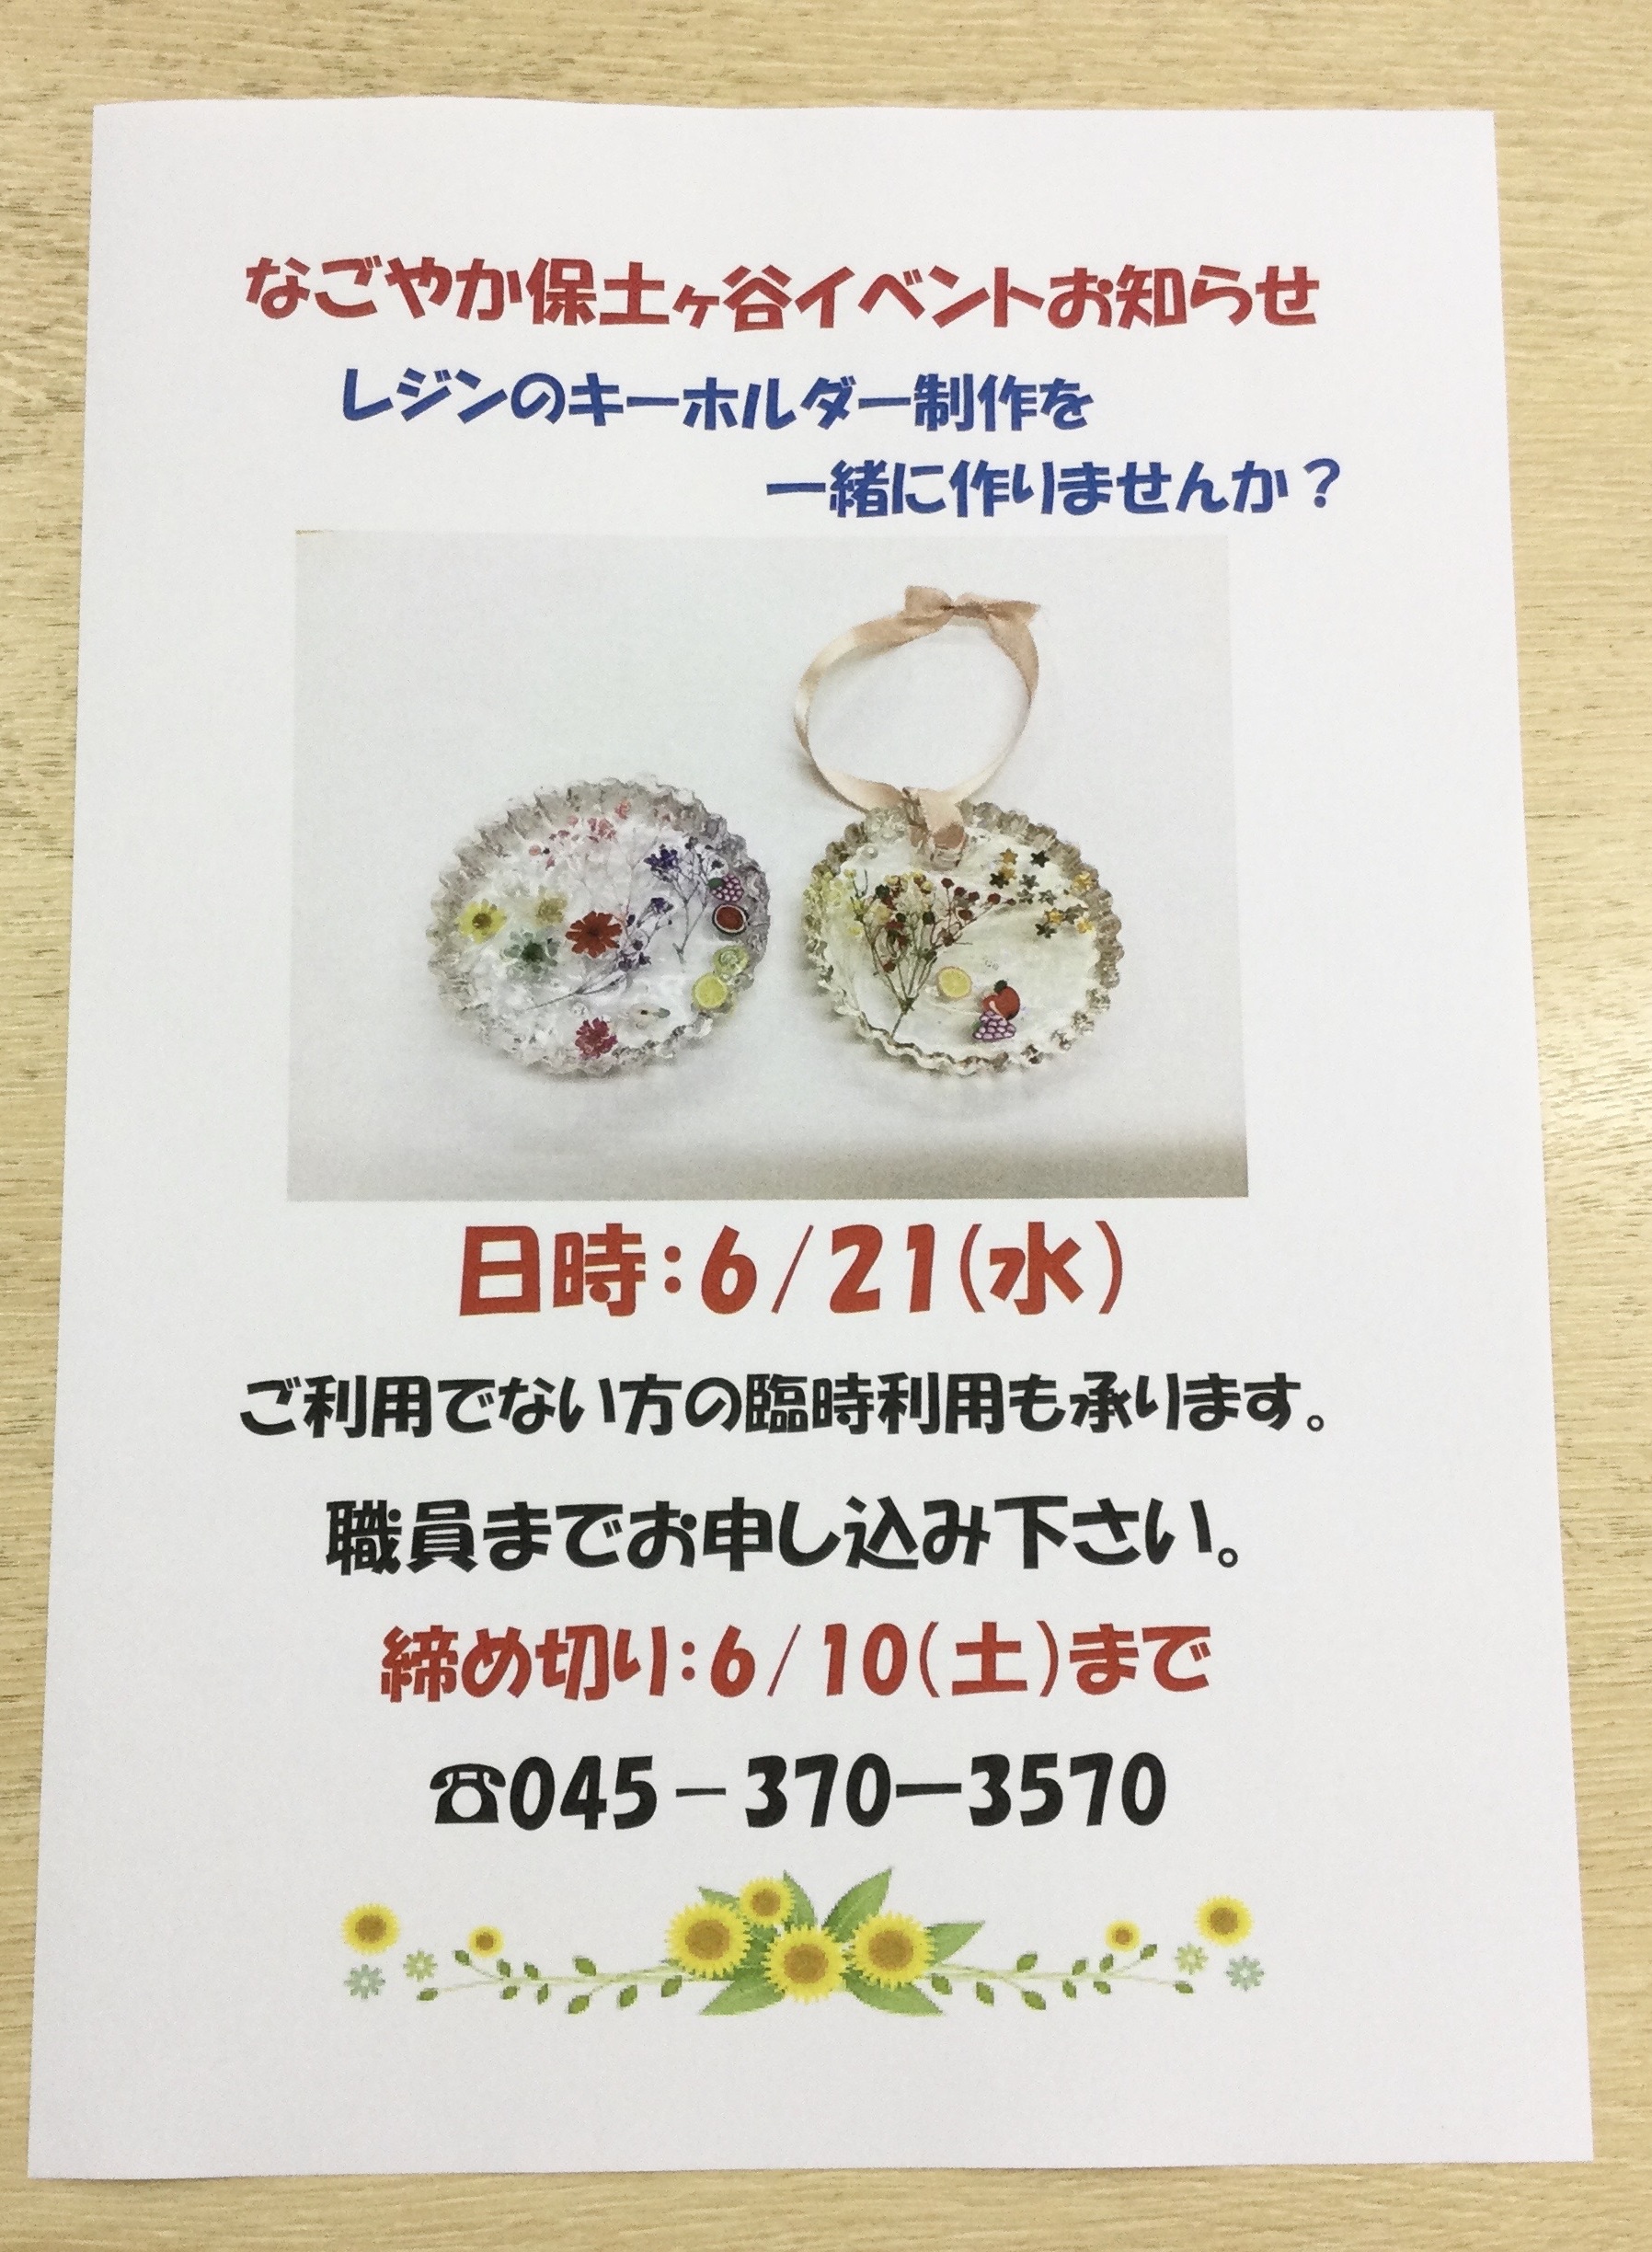 なごやか保土ヶ谷イベントお知らせ
レジンのキーホルダー制作を
一緒に作りませんか？
日時：6/21(水)
ご利用でない方の臨時利用も承ります。
職員までお申し込み下さい。
締め切り：6/10(土)まで
☎045－370ー3570